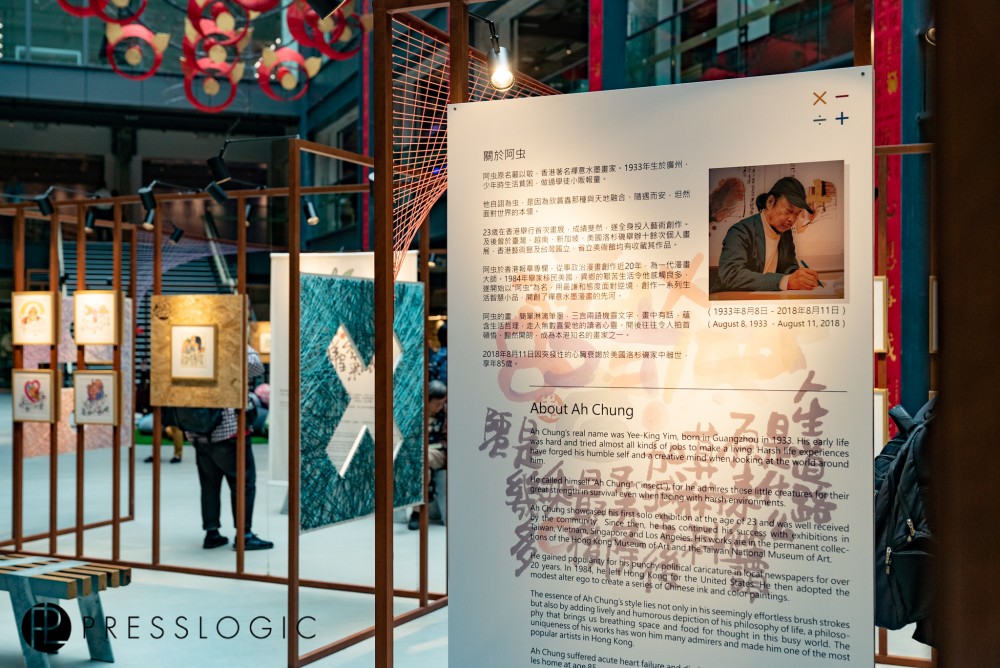 關於阿虫
阿虫原名嚴以敬，香港著名禪意水墨畫家。1933年生於廣州，
少年時生活貧困，做過學徒小販報童。
他自詡為虫，是因為欣賞蟲那種與天地融合、隨遇而安，坦然
面對世界的本領。
23歲在香港舉行首次畫展，成績斐然，遂全身投入藝術創作。
及後曾於臺灣、越南、新加坡、美國洛杉磯舉辦十餘次個人畫
展，香港藝術館及台灣國立、省立美術館均有收藏其作品。
阿虫於香港報章專欄，從事政治漫畫創作近20年，為一代漫畫
大師。1984年舉家移民美國，異鄉的艱苦生活令他感觸良多，
遂開始以"阿虫"為名，用最謙和態度面對逆境，創作一系列生
活智慧小品，開創了禪意水墨漫畫的先河。
阿虫的畫，簡單淋漓筆墨，三言兩語機靈文字，畫中有話，蘊
含生活哲理，走入無數喜愛他的讀者心靈。閱後往往令人拍首
頓悟，豁然開朗，成為本港知名的畫家之一。
2018年8月11日因突發性的心臟衰竭於美國洛杉磯家中離世，
享年85歲。
（1933年8月8日 - 2018年8月11日）
( August 8, 1933 - August 11, 2018 )
About Ah Chung
Ah Chung's real name was Yee-King Yim, born in Guangzhou in 1933. His early life
was hard and tried almost all kinds of jobs to make a living. Harsh life experiences
have forged his humble self and a creative mind when looking at the world around
him.
He called himself "Ah Chung" ("insect"), for he admires these little creatures for their
great strength in survival even when facing with harsh environments.
Ah Chung showcased his first solo exhibition at the age of 23 and was well received
by the community. Since then, he has continued his success with exhibitions in
Taiwan, Vietnam, Singapore and Los Angeles. His works are in the permanent collec-
tions of the Hong Kong Museum of Art and the Taiwan National Museum of Art.
He gained popularity for his punchy political caricature in local newspapers for over
20 years. In 1984, he left Hong Kong for the United States. He then adopted the
modest alter ego to create a series of Chinese ink and color paintings.
The essence of Ah Chung's style lies not only in his seemingly effortless brush strokes
but also by adding lively and humorous depiction of his philosophy of life, a philoso-
phy that brings us breathing space and food for thought in this busy world. The
uniqueness of his works has won him many admirers and made him one of the most
popular artists in Hong Kong.
Ah Chung suffered acute heart failure and
les home at age 85.
PRESSLOGIC